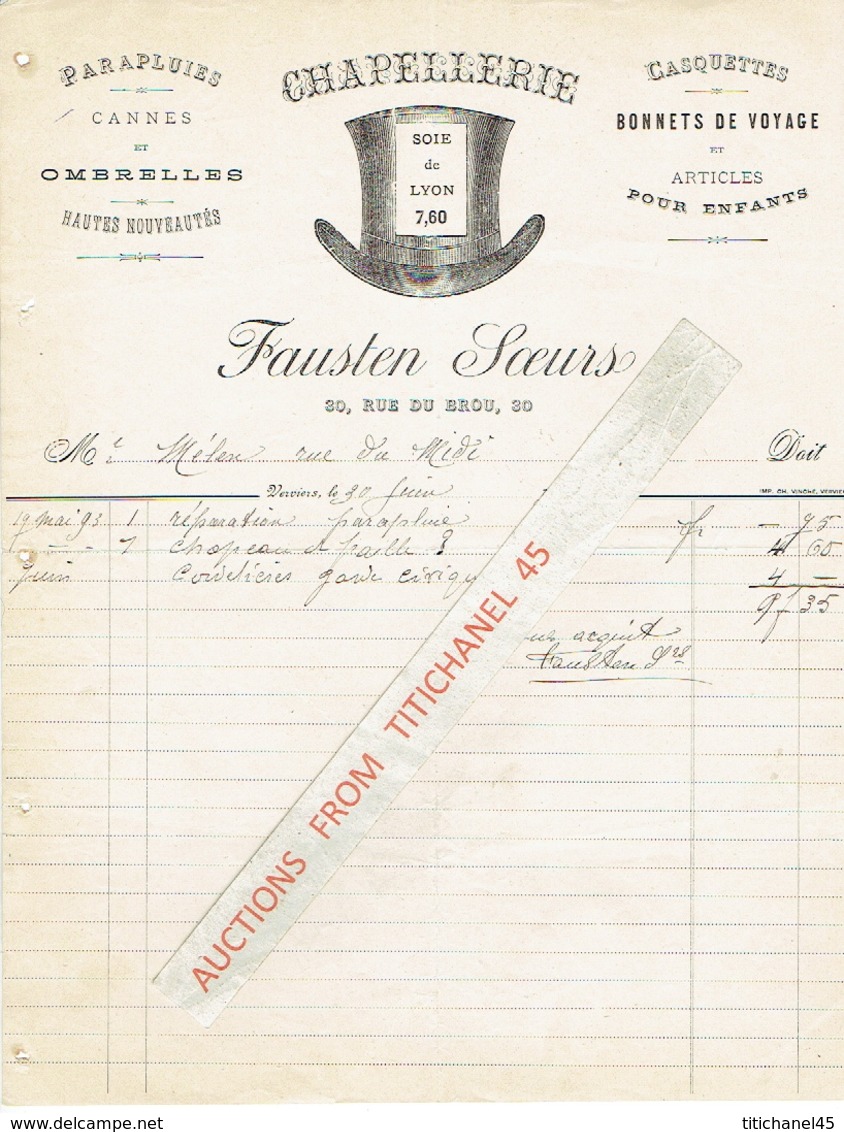 PARAPLUIES
CANNES
ET
OMBRELLES
HAUTES NOUVEAUTÉS
CHAPELLERIE
SOIE
de
LYON
7,60
CASQUETTES
BONNETS DE VOYAGE
ET
ARTICLES
POUR ENFANTS
Fausten Sœurs
30, RUE DU BROU, 30
Mr Mélen rue du Midi Doit
Verviers, le 30 Juin
IMP. CH. VINCHE, VERVIE
19 mai 93 1 réparation parapluie fr — 75
- - 1 chapeau d paille 4 60
Juin Cordelières garde civiqu 4 —
9f 35
acquit
Fausten Srs
AUCTIONS FROM TITICHANEL 45
www.delcampe.net
titichanel45